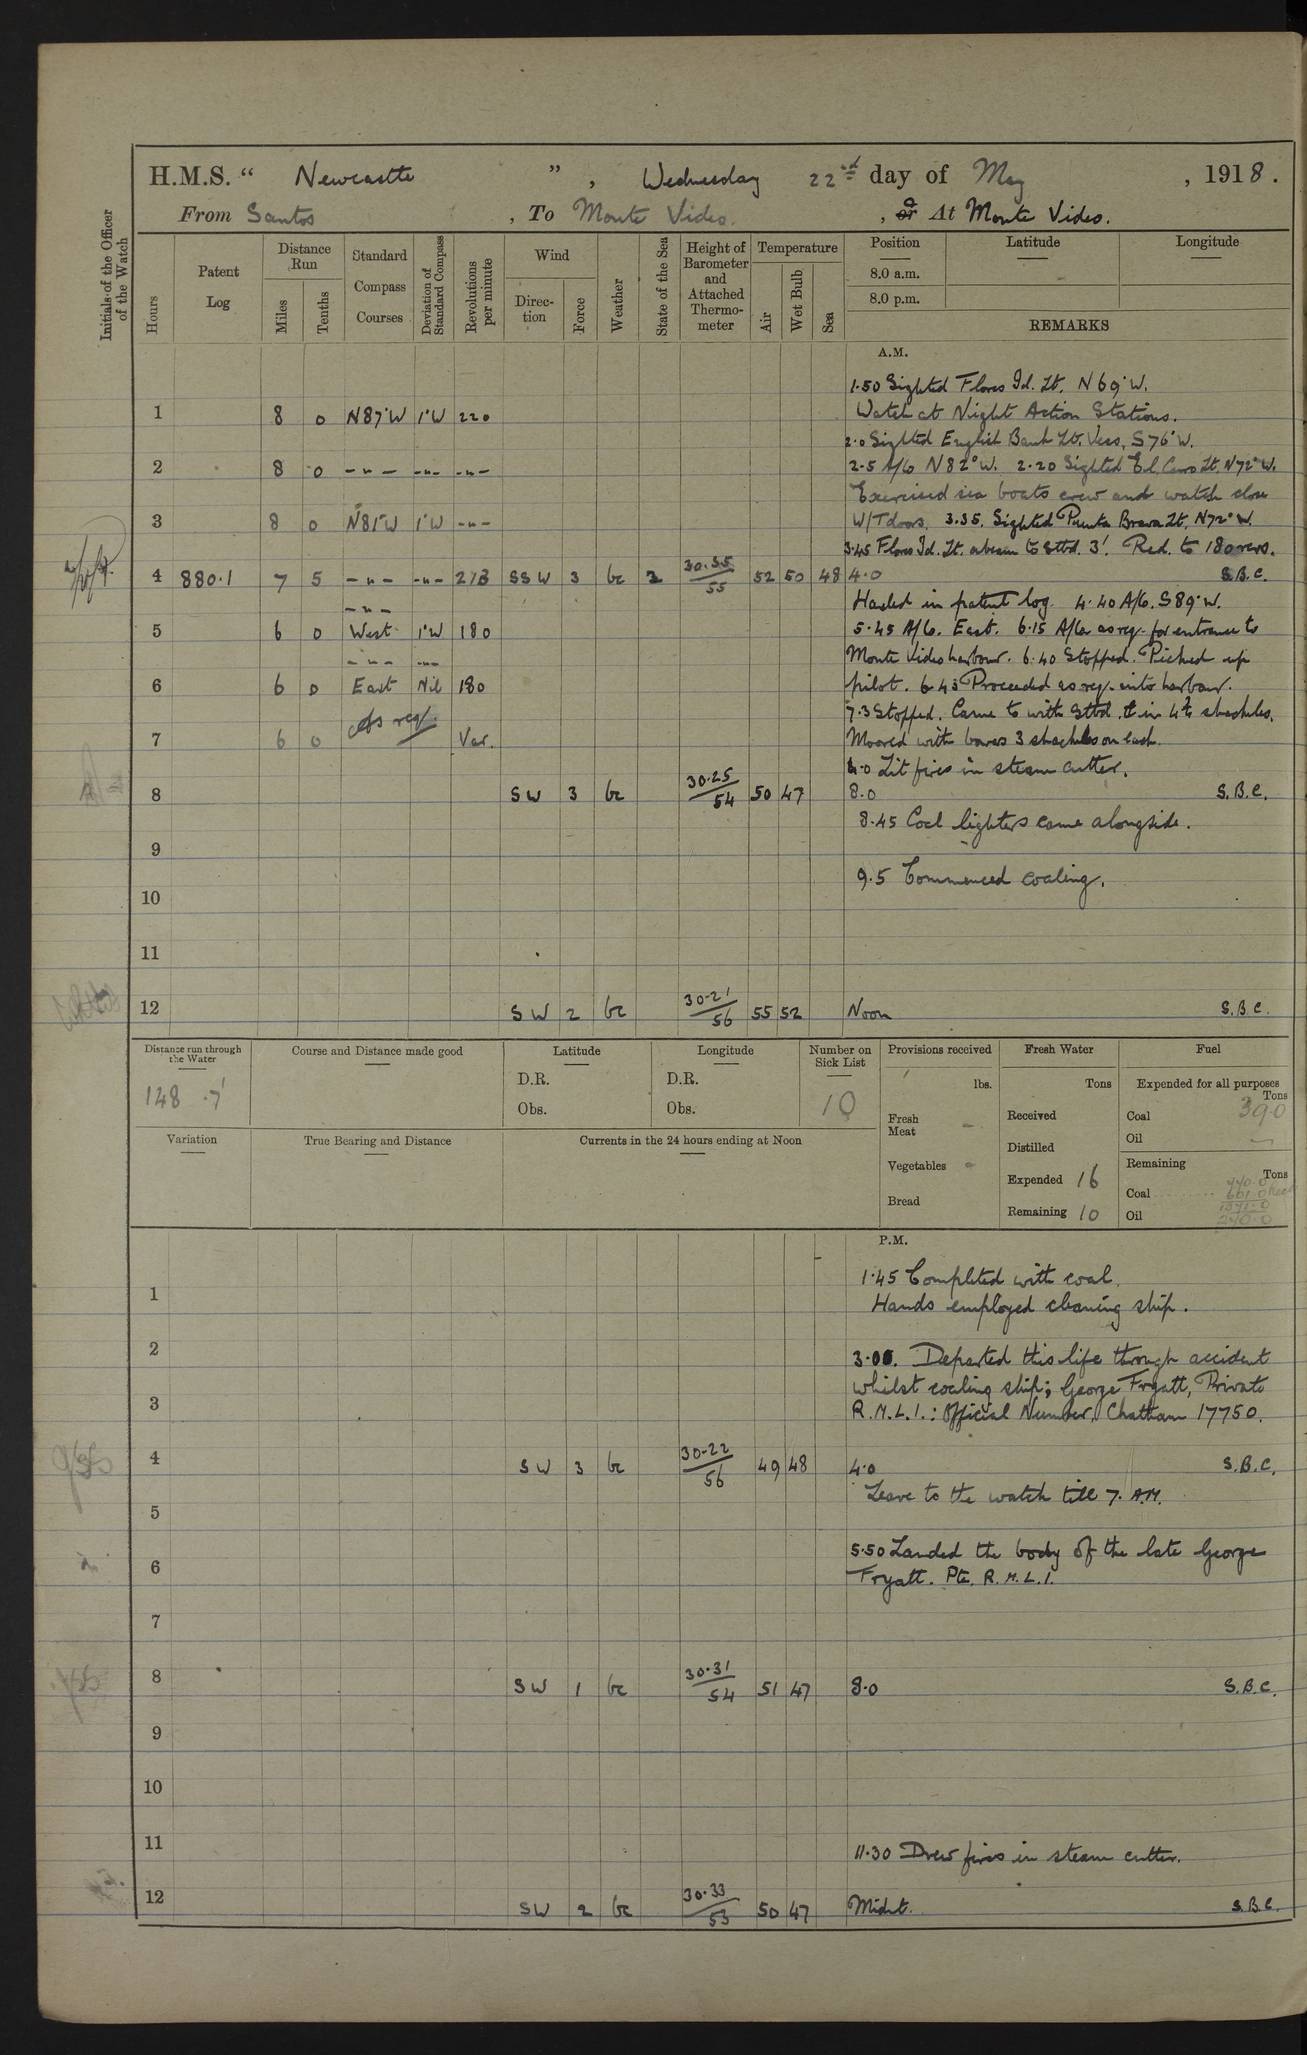 H.M.S. " Newcastle ", Wednesday 22nd day of May, 1918.
From Santos, To Monte Video., or At Monte Video.
Initials of the Officer of the Watch
Hours
Patent Log
Distance Run
Miles
Tenths
Standard Compass Courses
Deviation of Standard Compass
Revolutions per minute
Wind
Direction
Force
Weather
State of the Sea
Height of Barometer and Attached Thermometer
Temperature
Air
Wet Bulb
Sea
Position
Latitude
Longitude
8.0 a.m.
8.0 p.m.
REMARKS
A.M.
1.50 Sighted Flores Id. Lt. N69°W.
1 8 0 N87°W 1°W 220 Watch at Night Action Stations.
2.0 Sighted English Bank Lt. Vess, S76°W.
2 8 0 -"- -"- -"- 2.5 A/C N82°W. 2.20 Sighted El Cerro Lt, N72°W.
Exercised sea boats crew and watch close
3 8 0 N81°W 1°W -"- W/T doors. 3.35. Sighted Punta Brava Lt, N72°W.
3.45 Flores Id. Lt. abeam to Stbd. 3'. Red. to 180 revs.
4 880.1 7 5 -"- -"- 213 SSW 3 bc 2 30.35 55 52 50 48 4.0 S.B.C.
-"- Hauled in patent log. 4.40 A/C. S89°W.
5 6 0 West 1°W 180 5.45 A/C. East. 6.15 A/C as req. for entrance to
-"- -"- Monte Video harbour. 6.40 Stopped. Picked up
6 6 0 East Nil 180 pilot. 6.43 Proceeded as req. into harbour.
As req. 7.3 Stopped. Came to with Stbd. in 4½ shackles.
7 6 0 Var. Moored with bowers 3 shackles on each.
Lit fires in steam cutter.
8 SW 3 bc 30.25 54 50 47 8.0 S.B.C.
8.45 Coal lighters came alongside.
9
9.5 Commenced coaling.
10
11
12 SW 2 bc 30.21 56 55 52 Noon S.B.C.
Distance run through the Water
148.7'
Course and Distance made good
Latitude
D.R.
Obs.
Longitude
D.R.
Obs.
Number on Sick List
10
Provisions received
lbs.
Fresh Meat -
Vegetables -
Bread
Fresh Water
Tons
Received
Distilled
Expended 16
Remaining 10
Fuel
Expended for all purposes
Tons
Coal 39.0
Oil -
Remaining
Tons
Coal
Oil
Variation
True Bearing and Distance
Currents in the 24 hours ending at Noon
P.M.
1.45 Completed with coal.
1 Hands employed cleaning ship.
2 3.00. Departed this life through accident
whilst coaling ship; George Fryatt, Private
3 R.M.L.I.: Official Number, Chatham 17750.
4 SW 3 bc 30.22 56 49 48 4.0 S.B.C.
Leave to the watch till 7. A.M.
5
5.50 Landed the body of the late George
6 Fryatt. Pte. R.M.L.I.
7
8 SW 1 bc 30.31 54 51 47 8.0 S.B.C.
9
10
11 11.30 Drew fires in steam cutter.
12 SW 2 bc 30.33 53 50 47 Midnt. S.B.C.